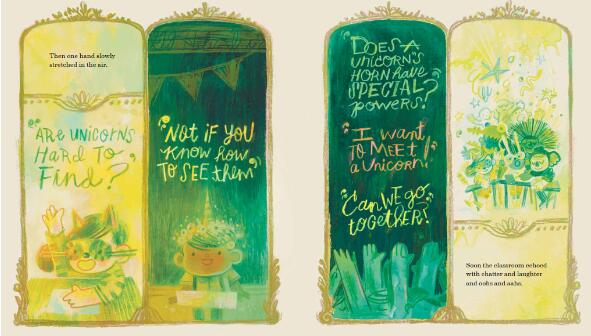 Then one hand slowly
stretched in the air.
"ARE UNICORNS
HARD TO
FIND?"
"NOT IF YOU
KNOW HOW
TO SEE them"
"DOES A
UNICORN'S
HORN have
SPECIAL
powers?"
"I want
TO MEET
a Unicorn!"
"Can WE go
together?"
Soon the classroom echoed
with chatter and laughter
and oohs and aahs.